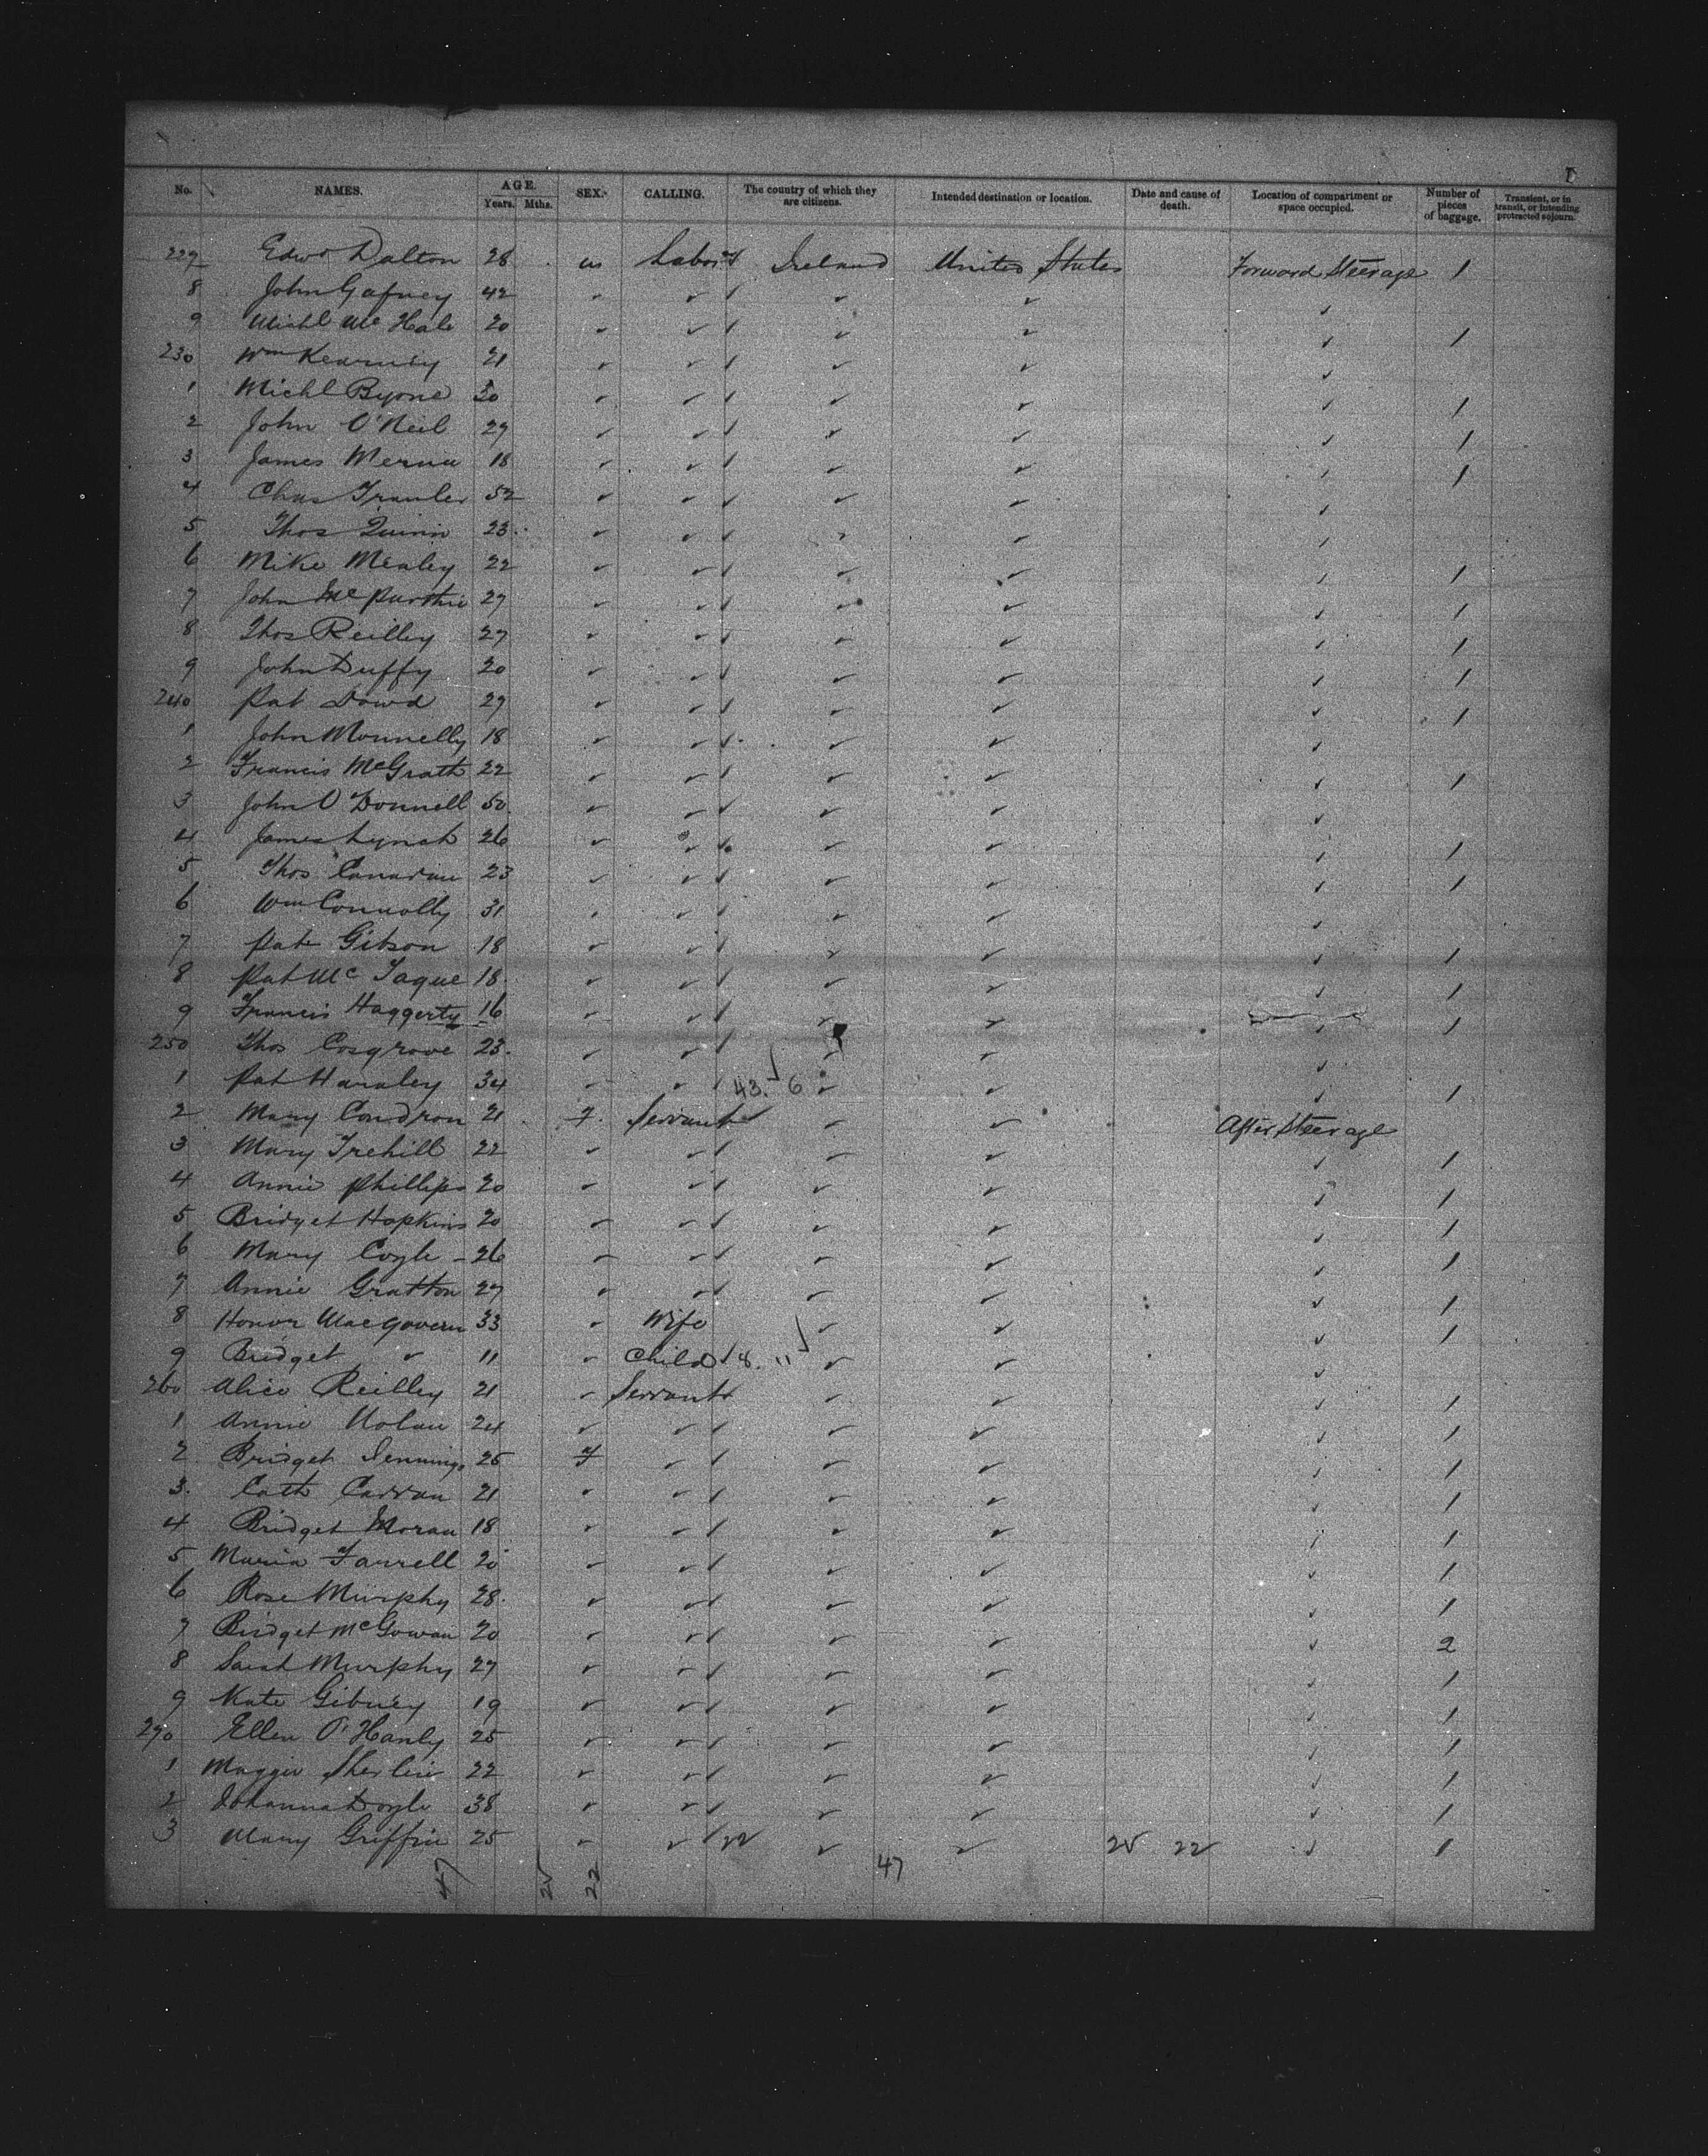 7
No. NAMES. AGE. Years. Mths. SEX. CALLING. The country of which they are citizens. Intended destination or location. Date and cause of death. Location of compartment or space occupied. Number of pieces of baggage. Transient, or in transit, or intending protracted sojourn.
227 Edwd Dalton 28 m Labor Ireland United States Forward Steerage 1
8 John Gafney 42 ✓ ✓ ✓ ✓ ✓
9 Michl McHale 20 ✓ ✓ ✓ ✓ ✓ 1
230 Wm Kearney 21 ✓ ✓ ✓ ✓ ✓
1 Michl Byrne 30 ✓ ✓ ✓ ✓ ✓ 1
2 John O'Neil 27 ✓ ✓ ✓ ✓ ✓ 1
3 James 18 ✓ ✓ ✓ ✓ ✓ 1
4 Chas 52 ✓ ✓ ✓ ✓ ✓
5 Thos Quinn 23 ✓ ✓ ✓ ✓ ✓
6 Mike Mealey 22 ✓ ✓ ✓ ✓ ✓ 1
7 John 27 ✓ ✓ ✓ ✓ ✓ 1
8 Thos Reilley 27 ✓ ✓ ✓ ✓ ✓ 1
9 John Duffy 20 ✓ ✓ ✓ ✓ ✓ 1
240 Pat Dowd 27 ✓ ✓ ✓ ✓ ✓ 1
1 John Monnelly 18 ✓ ✓ ✓ ✓ ✓
2 Francis McGrath 22 ✓ ✓ ✓ ✓ ✓ 1
3 John O'Donnell 50 ✓ ✓ ✓ ✓ ✓
4 James Lynch 26 ✓ ✓ ✓ ✓ ✓ 1
5 Thos Canavan 23 ✓ ✓ ✓ ✓ ✓ 1
6 Wm Connolly 31 ✓ ✓ ✓ ✓ ✓
7 Pat Gibson 18 ✓ ✓ ✓ ✓ ✓ 1
8 Pat McTague 18 ✓ ✓ ✓ ✓ ✓ 1
9 Francis Haggerty 16 ✓ ✓ ✓ ✓ ✓ 1
250 Thos Cosgrove 23 ✓ ✓ ✓ ✓ ✓
1 Pat Hanley 34 ✓ ✓ 43. 6 ✓ ✓ ✓ 1
2 Mary Condron 21 F Servant ✓ ✓ After Steerage
3 Mary Trehill 22 ✓ ✓ ✓ ✓ ✓ 1
4 Annie Phillips 20 ✓ ✓ ✓ ✓ ✓ 1
5 Bridget Hopkins 20 ✓ ✓ ✓ ✓ ✓ 1
6 Mary Coyle 26 ✓ ✓ ✓ ✓ ✓ 1
7 Annie Gratton 27 ✓ ✓ ✓ ✓ ✓ 1
8 Honor MacGovern 33 ✓ Wife ✓ ✓ ✓ 1
9 Bridget ✓ 11 ✓ Child 8. 11 ✓ ✓ ✓
260 Alice Reilley 21 ✓ Servant ✓ ✓ ✓ 1
1 Annie Nolan 24 ✓ ✓ ✓ ✓ ✓ 1
2 Bridget Jennings 25 F ✓ ✓ ✓ ✓ 1
3 Cath Curran 21 ✓ ✓ ✓ ✓ ✓ 1
4 Bridget Moran 18 ✓ ✓ ✓ ✓ ✓ 1
5 Maria Farrell 20 ✓ ✓ ✓ ✓ ✓ 1
6 Rose Murphy 28 ✓ ✓ ✓ ✓ ✓ 1
7 Bridget McGowan 20 ✓ ✓ ✓ ✓ ✓ 2
8 Sarah Murphy 27 ✓ ✓ ✓ ✓ ✓ 1
9 Kate Gibney 19 ✓ ✓ ✓ ✓ ✓ 1
270 Ellen O'Hanly 25 ✓ ✓ ✓ ✓ ✓ 1
1 Maggie 22 ✓ ✓ ✓ ✓ ✓ 1
2 Johanna Doyle 38 ✓ ✓ ✓ ✓ ✓ 1
3 Mary Griffin 25 ✓ ✓ 22 ✓ ✓ 25 22 ✓ 1
47 25 22 47